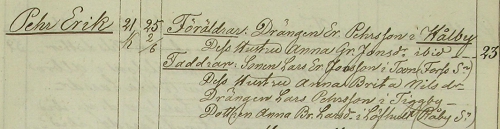 Pehr Erik 21/12 25/26 Föräldrar: Drängen Er. Pehrsson i Hålby
Dess Hustru Anna Gr. Jansd. ibid 23
Faddrar: Sonen Lars Er. Jonsson i (Torfs Sn)
Dess Hustru Anna Brita Nilsdr
Drängen Lars Pehrsson i Tiggby
Dottren Anna Br. Larsd. i Löfhult (Råby Sn)